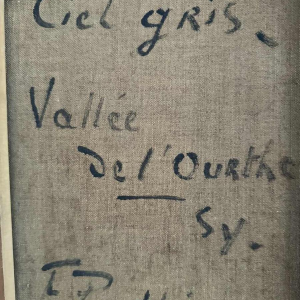 Ciel gris.
Vallée
de l'Ourthe
Sy.